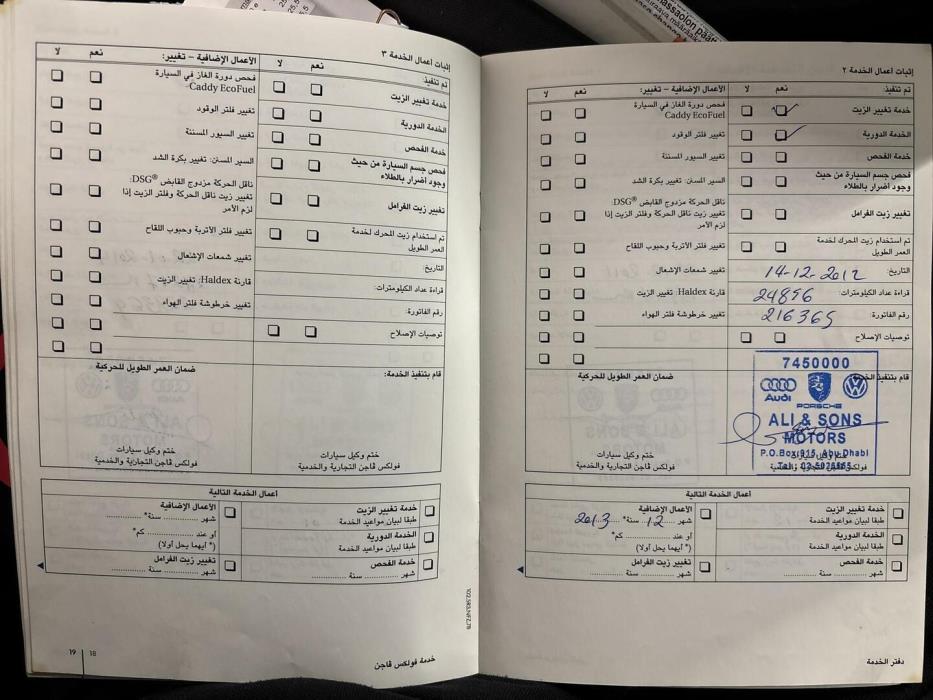 إثبات أعمال الخدمة ٢
تم تنفيذ: نعم لا
خدمة تغيير الزيت
الخدمة الدورية
خدمة الفحص
فحص جسم السيارة من حيث
وجود أضرار بالطلاء
تغيير زيت الفرامل
تم استخدام زيت المحرك لخدمة
العمر الطويل
التاريخ: 14-12-2012
قراءة عداد الكيلومترات: 24896
رقم الفاتورة: 216365
توصيات الإصلاح
الأعمال الإضافية – تغيير: نعم لا
فحص دورة الغاز في السيارة
Caddy EcoFuel
تغيير فلتر الوقود
تغيير السيور المسننة
السير المسنن: تغيير بكرة الشد
ناقل الحركة مزدوج القابض DSG®:
تغيير زيت ناقل الحركة وفلتر الزيت إذا
لزم الأمر
تغيير فلتر الأتربة وحبوب اللقاح
تغيير شمعات الإشعال
قارنة Haldex: تغيير الزيت
تغيير خرطوشة فلتر الهواء
قام بتنفيذ الخدمة:
7450000
Audi
PORSCHE
ALI & SONS
MOTORS
P.O.Box: 915, Abu Dhabi
ختم وكيل سيارات
فولكس ڤاجن التجارية والخدمية
ضمان العمر الطويل للحركية
ختم وكيل سيارات
فولكس ڤاجن التجارية والخدمية
أعمال الخدمة التالية
خدمة تغيير الزيت
طبقا لبيان مواعيد الخدمة
الخدمة الدورية
طبقا لبيان مواعيد الخدمة
خدمة الفحص
شهر ........ سنة ........
الأعمال الإضافية
شهر 12 سنة* 2013
أو عند ........ كم*
(* أيهما يحل أولا)
تغيير زيت الفرامل
شهر ........ سنة ........
دفتر الخدمة
إثبات أعمال الخدمة ٣
تم تنفيذ: نعم لا
خدمة تغيير الزيت
الخدمة الدورية
خدمة الفحص
فحص جسم السيارة من حيث
وجود أضرار بالطلاء
تغيير زيت الفرامل
تم استخدام زيت المحرك لخدمة
العمر الطويل
التاريخ:
قراءة عداد الكيلومترات:
رقم الفاتورة:
توصيات الإصلاح
الأعمال الإضافية – تغيير: نعم لا
فحص دورة الغاز في السيارة
Caddy EcoFuel
تغيير فلتر الوقود
تغيير السيور المسننة
السير المسنن: تغيير بكرة الشد
ناقل الحركة مزدوج القابض DSG®:
تغيير زيت ناقل الحركة وفلتر الزيت إذا
لزم الأمر
تغيير فلتر الأتربة وحبوب اللقاح
تغيير شمعات الإشعال
قارنة Haldex: تغيير الزيت
تغيير خرطوشة فلتر الهواء
قام بتنفيذ الخدمة:
ختم وكيل سيارات
فولكس ڤاجن التجارية والخدمية
ضمان العمر الطويل للحركية
ختم وكيل سيارات
فولكس ڤاجن التجارية والخدمية
أعمال الخدمة التالية
خدمة تغيير الزيت
طبقا لبيان مواعيد الخدمة
الخدمة الدورية
طبقا لبيان مواعيد الخدمة
خدمة الفحص
شهر ........ سنة ........
الأعمال الإضافية
شهر ........ سنة* ........
أو عند ........ كم*
(* أيهما يحل أولا)
تغيير زيت الفرامل
شهر ........ سنة ........
خدمة فولكس ڤاجن
18
19